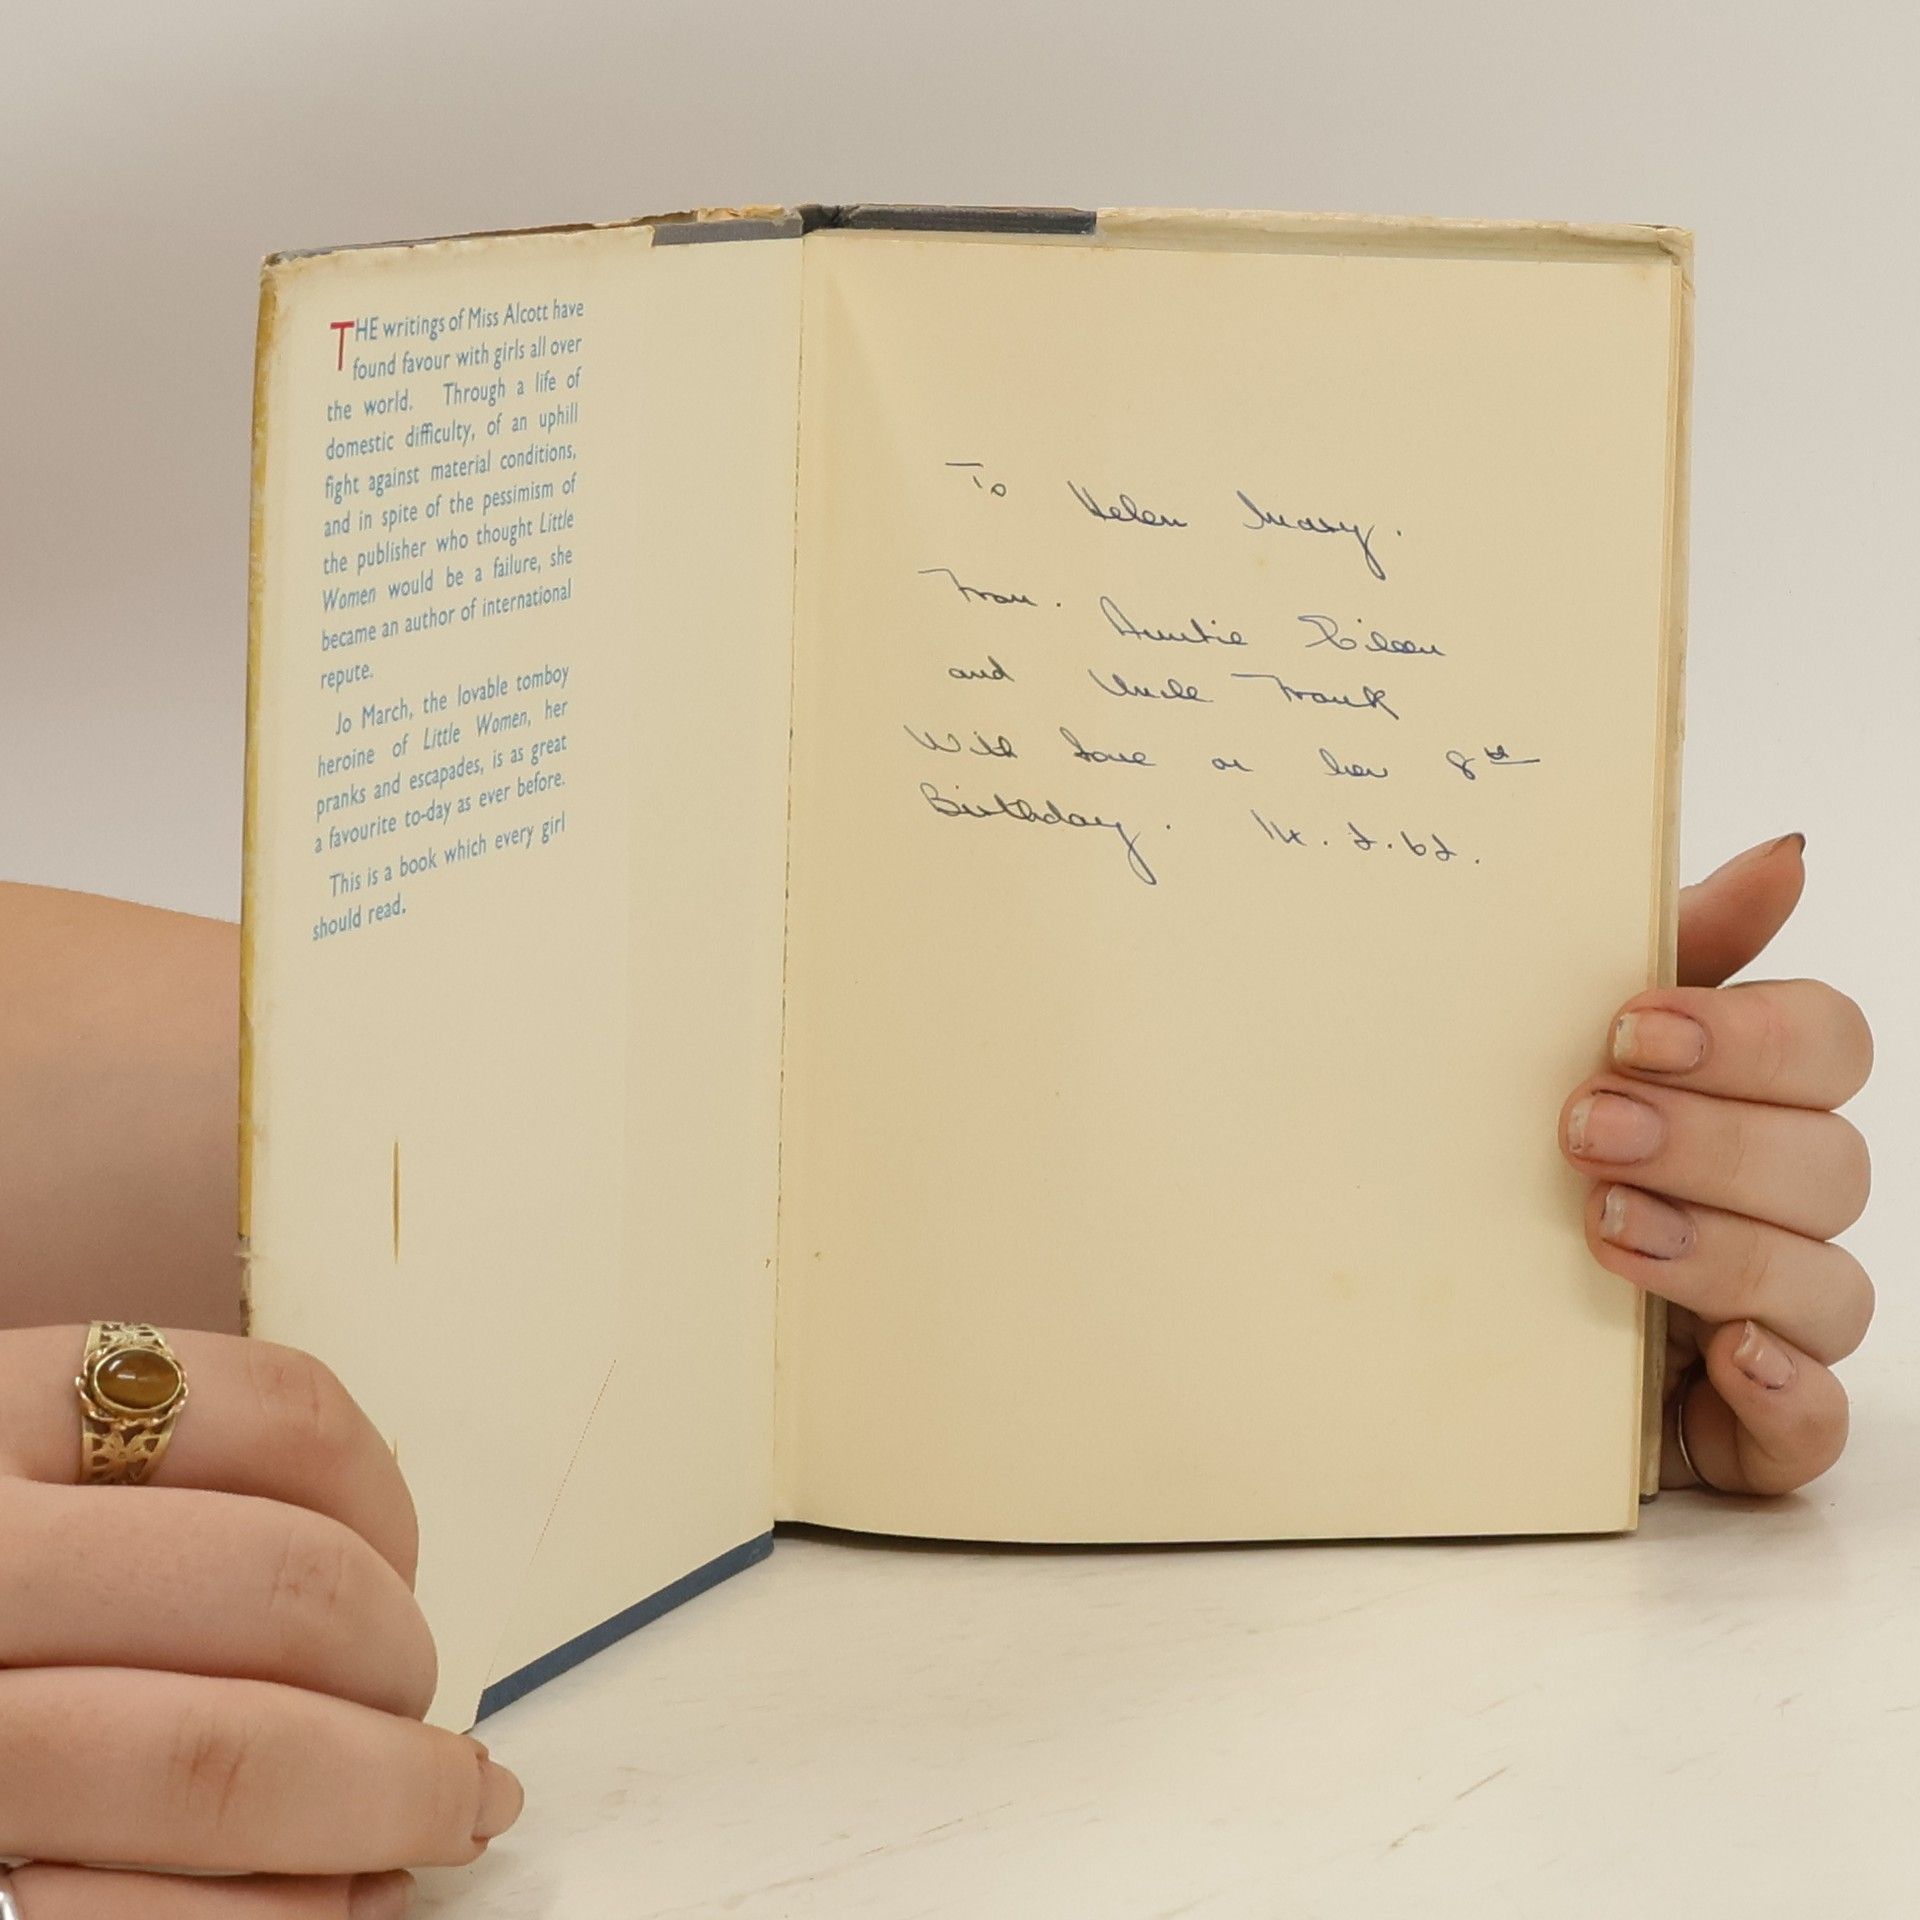 THE writings of Miss Alcott have
found favour with girls all over
the world. Through a life of
domestic difficulty, of an uphill
fight against material conditions,
and in spite of the pessimism of
the publisher who thought Little
Women would be a failure, she
became an author of international
repute.
Jo March, the lovable tomboy
heroine of Little Women, her
pranks and escapades, is as great
a favourite to-day as ever before.
This is a book which every girl
should read.
To Helen Mary.
From. Auntie Eileen
and Uncle Frank
With love on her 8th
Birthday. 14.2.62.